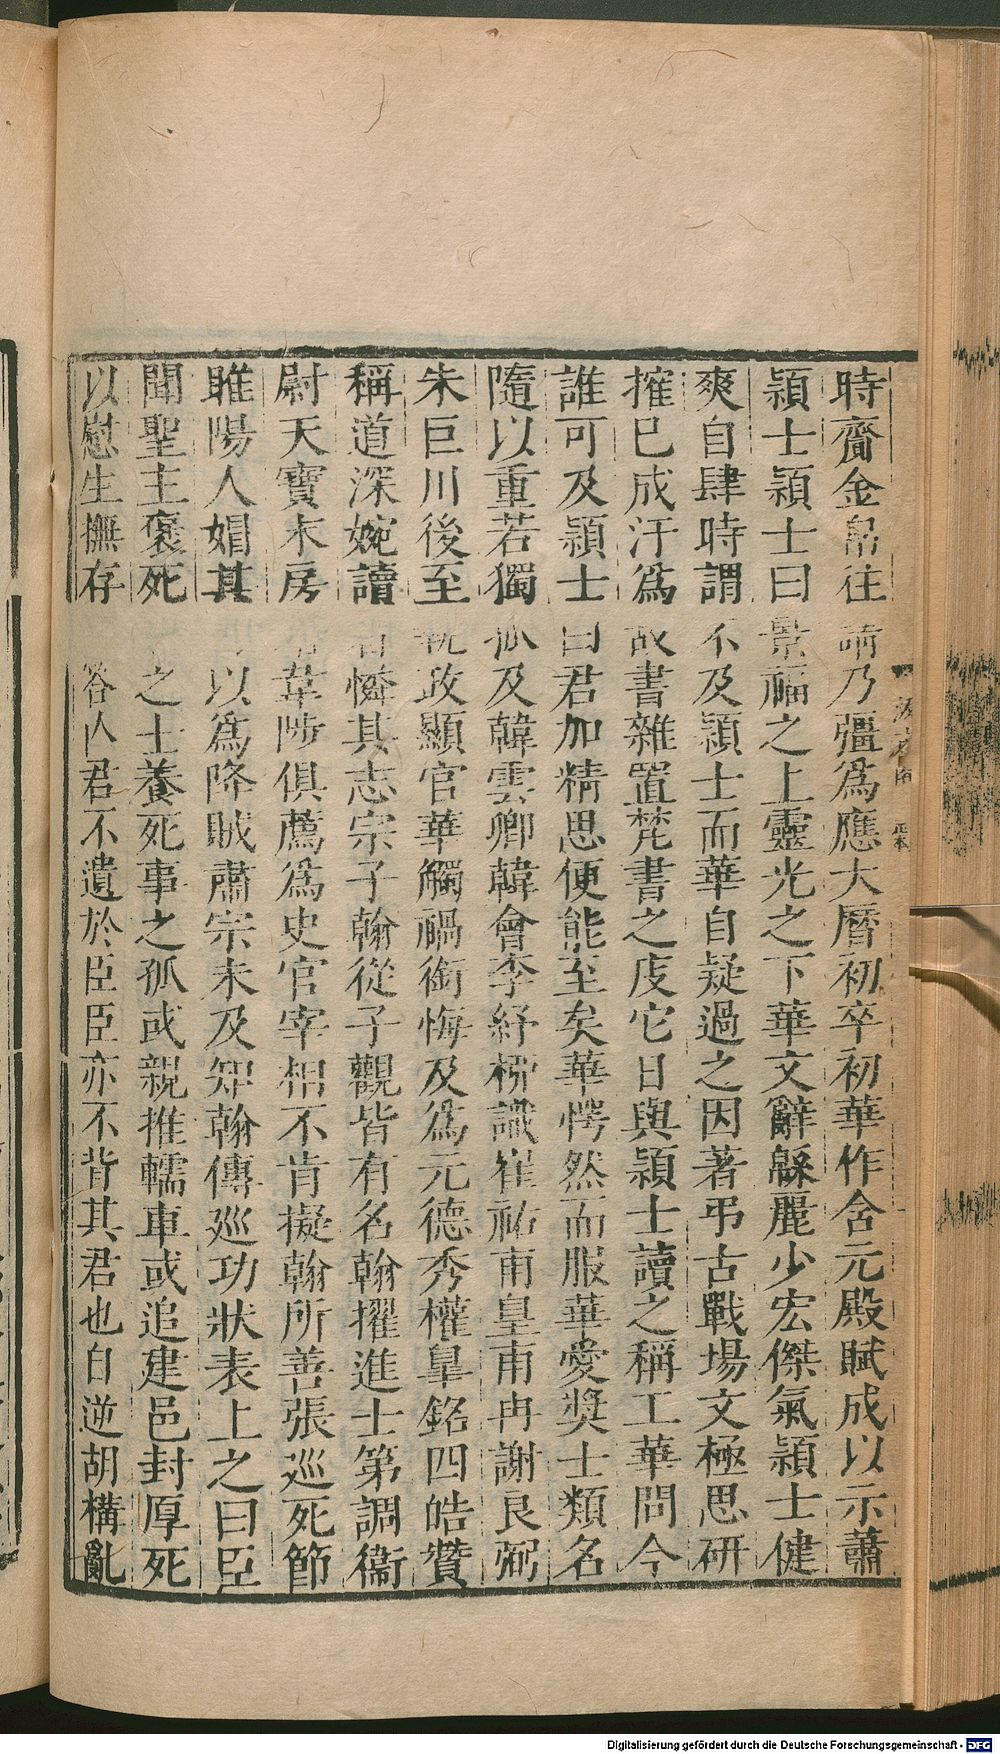 時齎金帛往請乃彊爲應大曆初卒初華作含元殿賦成以示蕭
穎士穎士曰景福之上靈光之下華文辭緜麗少宏傑氣穎士健
爽自肆時謂不及穎士而華自疑過之因著弔古戰場文極思研
搉已成汙爲故書雜置梵書之庋它日與穎士讀之稱工華問今
誰可及穎士曰君加精思便能至矣華愕然而服華愛奬士類名
隨以重若獨孤及韓雲卿韓會李紓柳識崔祐甫皇甫冉謝良弼
朱巨川後至執政顯官華觸禍銜悔及爲元德秀權臯銘四皓贊
稱道深婉讀者憐其志宗子翰從子觀皆有名翰擢進士第調衞
尉天寶末房琯韋陟俱薦爲史官宰相不肯擬翰所善張巡死節
睢陽人媢其以爲降賊肅宗未及知翰傳巡功狀表上之曰臣
聞聖主褒死之士養死事之孤或親推轜車或追建邑封厚死
以慰生撫存答亾君不遺於臣臣亦不背其君也自逆胡構亂
Digitalisierung gefördert durch die Deutsche Forschungsgemeinschaft - DFG